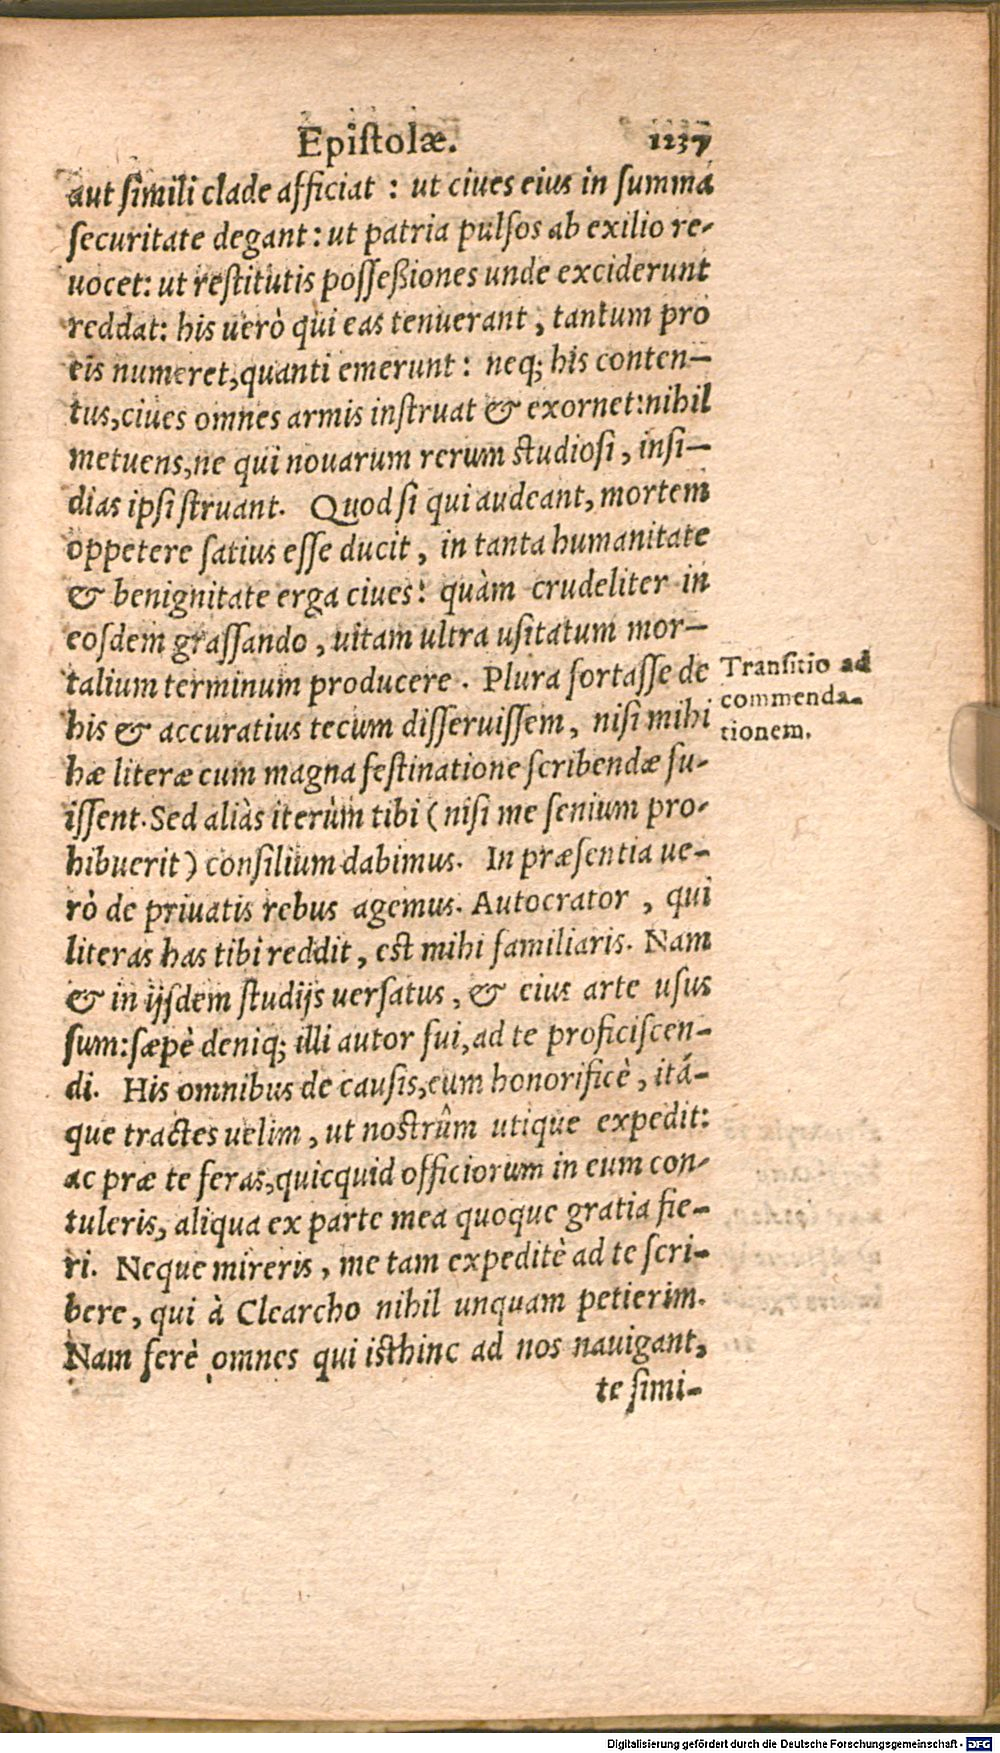 Epistolæ. 1237
aut simili clade afficiat : ut ciues eius in summa
securitate degant: ut patria pulsos ab exilio re-
uocet: ut restitutis possessiones unde exciderunt
reddat: his uerò qui eas tenuerant, tantum pro
eis numeret, quanti emerunt: neq; his conten-
tus, ciues omnes armis instruat & exornet: nihil
metuens, ne qui nouarum rerum studiosi, insi-
dias ipsi struant. Quod si qui audeant, mortem
oppetere satius esse ducit, in tanta humanitate
& benignitate erga ciues: quàm crudeliter in
eosdem grassando, uitam ultra usitatum mor-
talium terminum producere. Plura fortasse de
his & accuratius tecum disseruissem, nisi mihi
hæ literæ cum magna festinatione scribendæ fu-
issent. Sed aliàs iterùm tibi (nisi me senium pro-
hibuerit) consilium dabimus. In præsentia ue-
rò de priuatis rebus agemus. Autocrator, qui
literas has tibi reddit, est mihi familiaris. Nam
& in ijsdem studijs uersatus, & eius arte usus
sum: sæpè deniq; illi autor fui, ad te proficiscen-
di. His omnibus de causis, eum honorificè, itá-
que tractes uelim, ut nostrûm utique expedit:
ac præ te feras, quicquid officiorum in eum con-
tuleris, aliqua ex parte mea quoque gratia fie-
ri. Neque mireris, me tam expeditè ad te scri-
bere, qui à Clearcho nihil unquam petierim.
Nam ferè omnes qui isthinc ad nos nauigant,
te simi-
Transitio ad
commenda-
tionem.
Digitalisierung gefördert durch die Deutsche Forschungsgemeinschaft - DFG